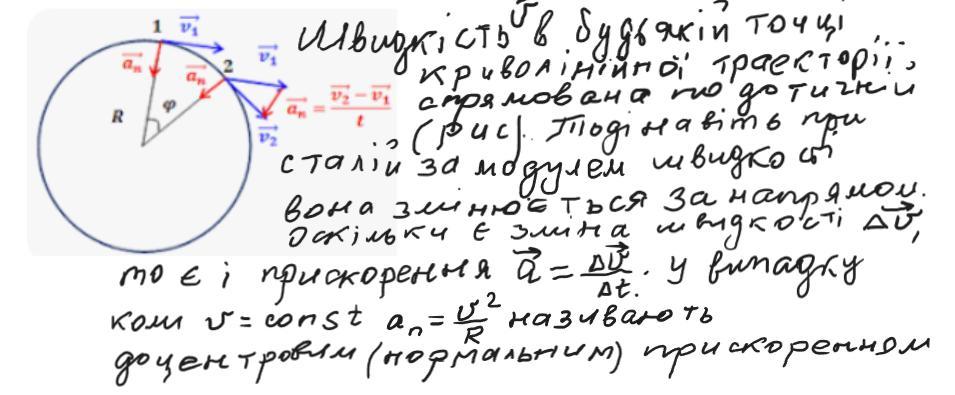 1 v₁
Швидкість v в будь-якій точці
aₙ 2 v₁
aₙ
криволінійної траєкторії,
R φ
aₙ = (v₂ − v₁)/t
v₂
спрямована по дотичній
(рис). Тоді навіть при
сталій за модулем швидкості
вона змінюється за напрямом.
оскільки є зміна швидкості Δv,
то є і прискорення a = Δv/Δt. У випадку
коли v = const aₙ = v²/R називають
доцентровим (нормальним) прискоренням